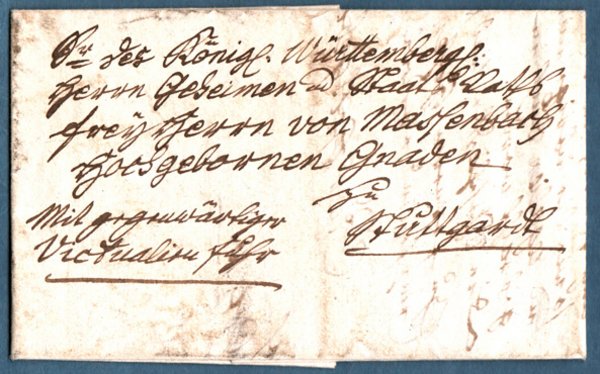 Sr des Königl. Württembergl.
Herrn Geheimen und Staats Raths
Freyherrn von Massenbach
Hochgebornen Gnaden
Zu
Stuttgardt
Mit gegenwärtiger
Victualien fuhr